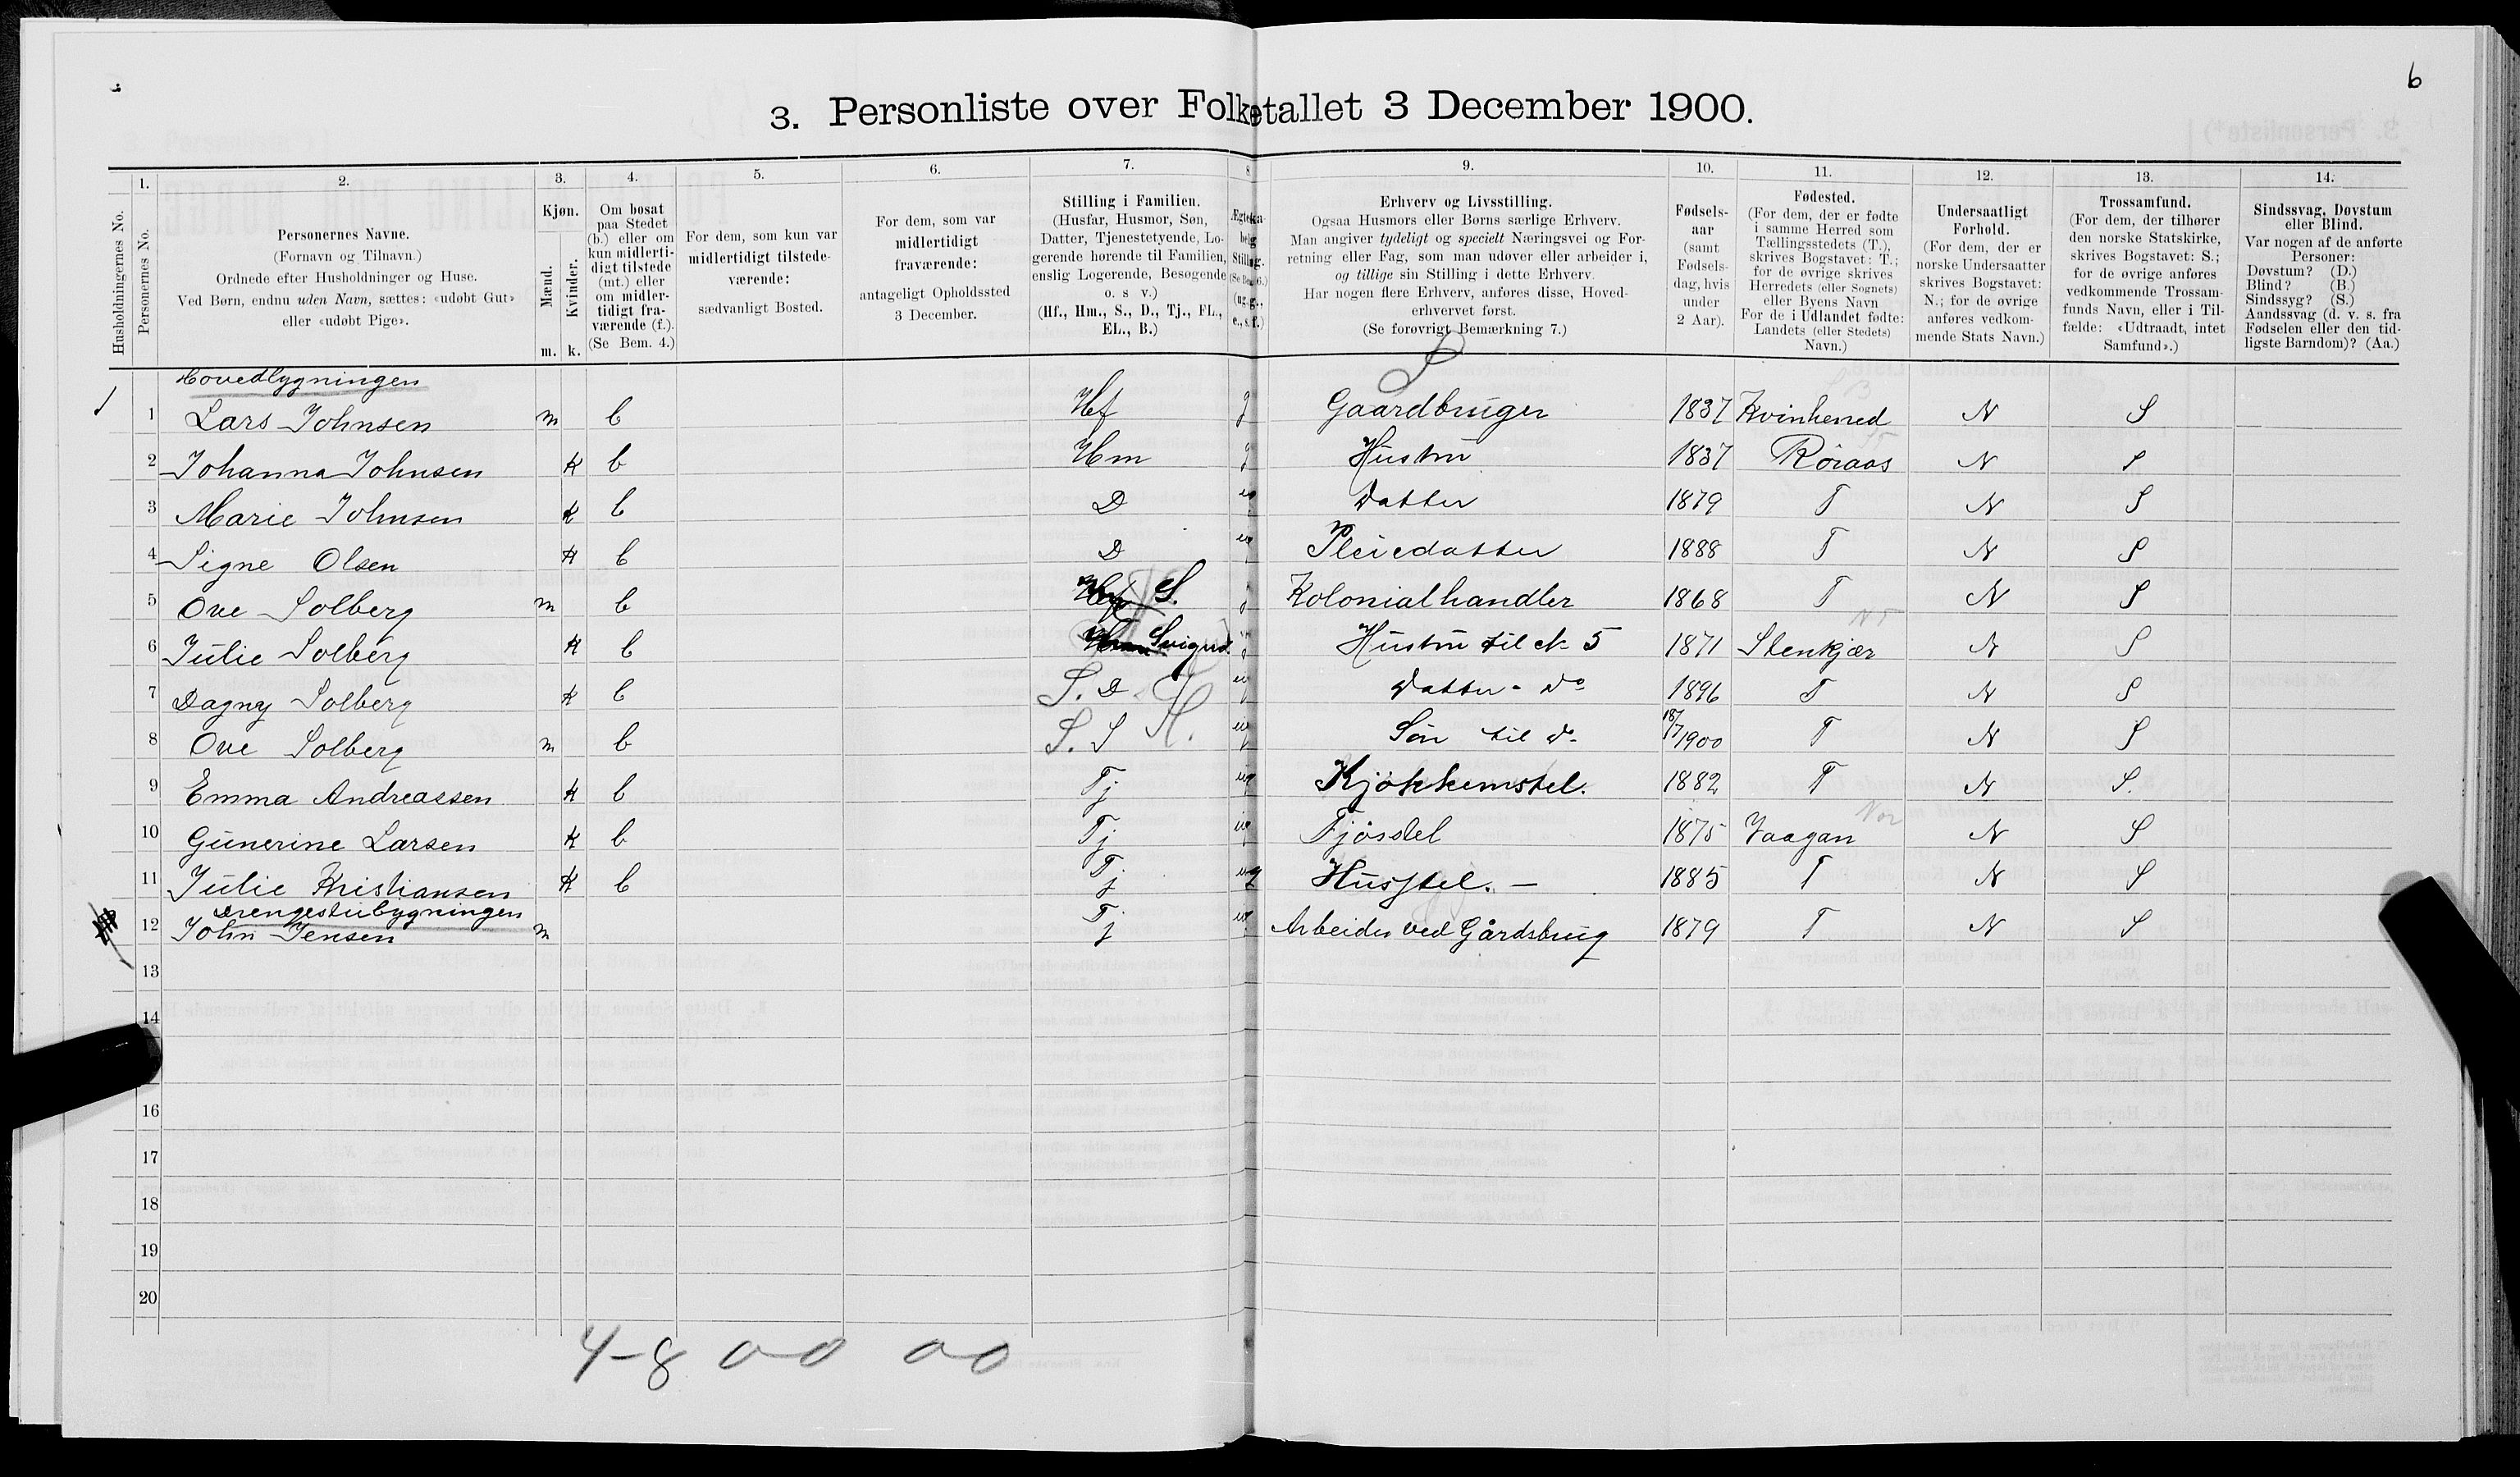 6
3. Personliste over Folketallet 3 December 1900.
1. 2. 3. 4. 5. 6. 7. 8 9. 10. 11. 12. 13. 14.
Husholdningernes No.
Personernes No.
Personernes Navne.
(Fornavn og Tilnavn.)
Ordnede efter Husholdninger og Huse.
Ved Børn, endnu uden Navn, sættes: «udøbt Gut»
eller «udøbt Pige».
Kjøn.
Mænd.
Kvinder.
m. k.
Om bosat
paa Stedet
(b.) eller om
kun midlerti-
digt tilstede
(mt.) eller
om midler-
tidigt fra-
værende (f.).
(Se Bem. 4.)
For dem, som kun var
midlertidigt tilstede-
værende:
sædvanligt Bosted.
For dem, som var
midlertidigt
fraværende:
antageligt Opholdssted
3 December.
Stilling i Familien.
(Husfar, Husmor, Søn,
Datter, Tjenestetyende, Lo-
gerende hørende til Familien,
enslig Logerende, Besøgende
o. s v.)
(Hf., Hm., S., D., Tj., FL.,
EL., B.)
Erhverv og Livsstilling.
Ogsaa Husmors eller Børns særlige Erhverv.
Man angiver tydeligt og specielt Næringsvei og For-
retning eller Fag, som man udøver eller arbeider i,
og tillige sin Stilling i dette Erhverv.
Har nogen flere Erhverv, anføres disse, Hoved-
erhvervet først.
(Se forøvrigt Bemærkning 7.)
Fødsels-
aar
(samt
Fødsels-
dag, hvis
under
2 Aar).
Fødested.
(For dem, der er fødte
i samme Herred som
Tællingsstedets (T.),
skrives Bogstavet: T.;
for de øvrige skrives
Herredets (eller Sognets)
eller Byens Navn
For de i Udlandet fødte:
Landets (eller Stedets)
Navn.)
Undersaatligt
Forhold.
(For dem, der er
norske Undersaatter
skrives Bogstavet:
N.; for de øvrige
anføres vedkom-
mende Stats Navn.)
Trossamfund.
(For dem, der tilhører
den norske Statskirke,
skrives Bogstavet: S.;
for de øvrige anføres
vedkommende Trossam-
funds Navn, eller i Til-
fælde: «Udtraadt, intet
Samfund».)
Sindssvag, Døvstum
eller Blind.
Var nogen af de anførte
Personer:
Døvstum? (D.)
Blind? (B.)
Sindssyg? (S.)
Aandssvag (d. v. s. fra
Fødselen eller den tid-
ligste Barndom)? (Aa.)
Hovedbygningen
1 Lars Johnsen m b Hf g Gaardbruger 1837 Kvinherred N S
2 Johanna Johnsen K b Hm g Hustru 1837 Röraas N S
3 Marie Johnsen K b D ug Datter 1879 T N S
4 Signe Olsen K b D ug Pleiedatter 1888 T N S
5 Ove Solberg m b S. g Kolonialhandler 1868 T N S
6 Julie Solberg K b Svigerd. g Hustru til No 5 1871 Stenkjær N S
7 Dagny Solberg K b S. D. ug Datter - do 1896 T N S
8 Ove Solberg m b S. S ug Sön til do 18/7 1900 T N S
9 Emma Andreassen K b Tj ug Kjøkkenstel. 1882 T N S.
10 Gunerine Larsen K b Tj ug Fjösstel 1875 Vaagan N S
11 Julie Kristiansen K b Tj ug Husstel. — 1885 T N S
Drengestubygningen
12 John Jensen m Tj ug Arbeider ved Gårdsbrug 1879 T N S
13
14
16
17
18
19
20
4-8 0-0 0-0